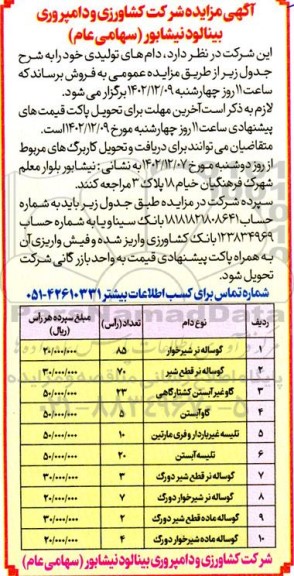 آگهی مزایده شرکت کشاورزی و دامپروری
بینالود نیشابور (سهامی عام)
این شرکت در نظر دارد، دام های تولیدی خود را به شرح
جدول زیر از طریق مزایده عمومی به فروش برساند که
ساعت ۱۱ روز چهارشنبه ۱۴۰۲/۱۲/۰۹ برگزار می شود.
لازم به ذکر است آخرین مهلت برای تحویل پاکت قیمت های
پیشنهادی ساعت ۱۱ روز چهارشنبه مورخ ۱۴۰۲/۱۲/۰۹ است.
متقاضیان می توانند برای دریافت و تحویل کاربرگ های مربوط
از روز دوشنبه مورخ ۱۴۰۲/۱۲/۰۷ به نشانی: نیشابور بلوار معلم
شهرک فرهنگیان خیام ۱۸ پلاک ۳ مراجعه کنند.
سپرده شرکت در مزایده طبق جدول زیر باید به شماره
حساب ۱۱۸۱۸۱۲۱۸۰۸۶۴۱ بانک سینا و یا به شماره حساب
۱۲۳۸۳۴۹۶۹ بانک کشاورزی واریز شده و فیش واریزی آن
به همراه پاکت پیشنهادی قیمت به واحد بازرگانی شرکت
تحویل شود.
شماره تماس برای کسب اطلاعات بیشتر ۰۵۱-۴۲۶۱۰۳۳۱
ردیف نوع دام تعداد (رأس) مبلغ سپرده هر رأس (ریال)
۱ گوساله نر شیرخوار ۸۵ ۲۰/۰۰۰/۰۰۰
۲ گوساله نر قطع شیر ۷۰ ۳۰/۰۰۰/۰۰۰
۳ گاو غیر آبستن کشتارگاهی ۲۳ ۵۰/۰۰۰/۰۰۰
۴ گاو آبستن ۵ ۵۰/۰۰۰/۰۰۰
۵ تلیسه غیر باردار و فری مارتین ۱۰ ۵۰/۰۰۰/۰۰۰
۶ تلیسه آبستن ۲۰ ۵۰/۰۰۰/۰۰۰
۷ گوساله نر قطع شیر دورگ ۳ ۳۰/۰۰۰/۰۰۰
۸ گوساله نر شیرخوار دورگ ۷ ۲۰/۰۰۰/۰۰۰
۹ گوساله ماده قطع شیر دورگ ۲ ۳۰/۰۰۰/۰۰۰
۱۰ گوساله ماده شیرخوار دورگ ۴ ۲۰/۰۰۰/۰۰۰
شرکت کشاورزی و دامپروری بینالود نیشابور (سهامی عام)